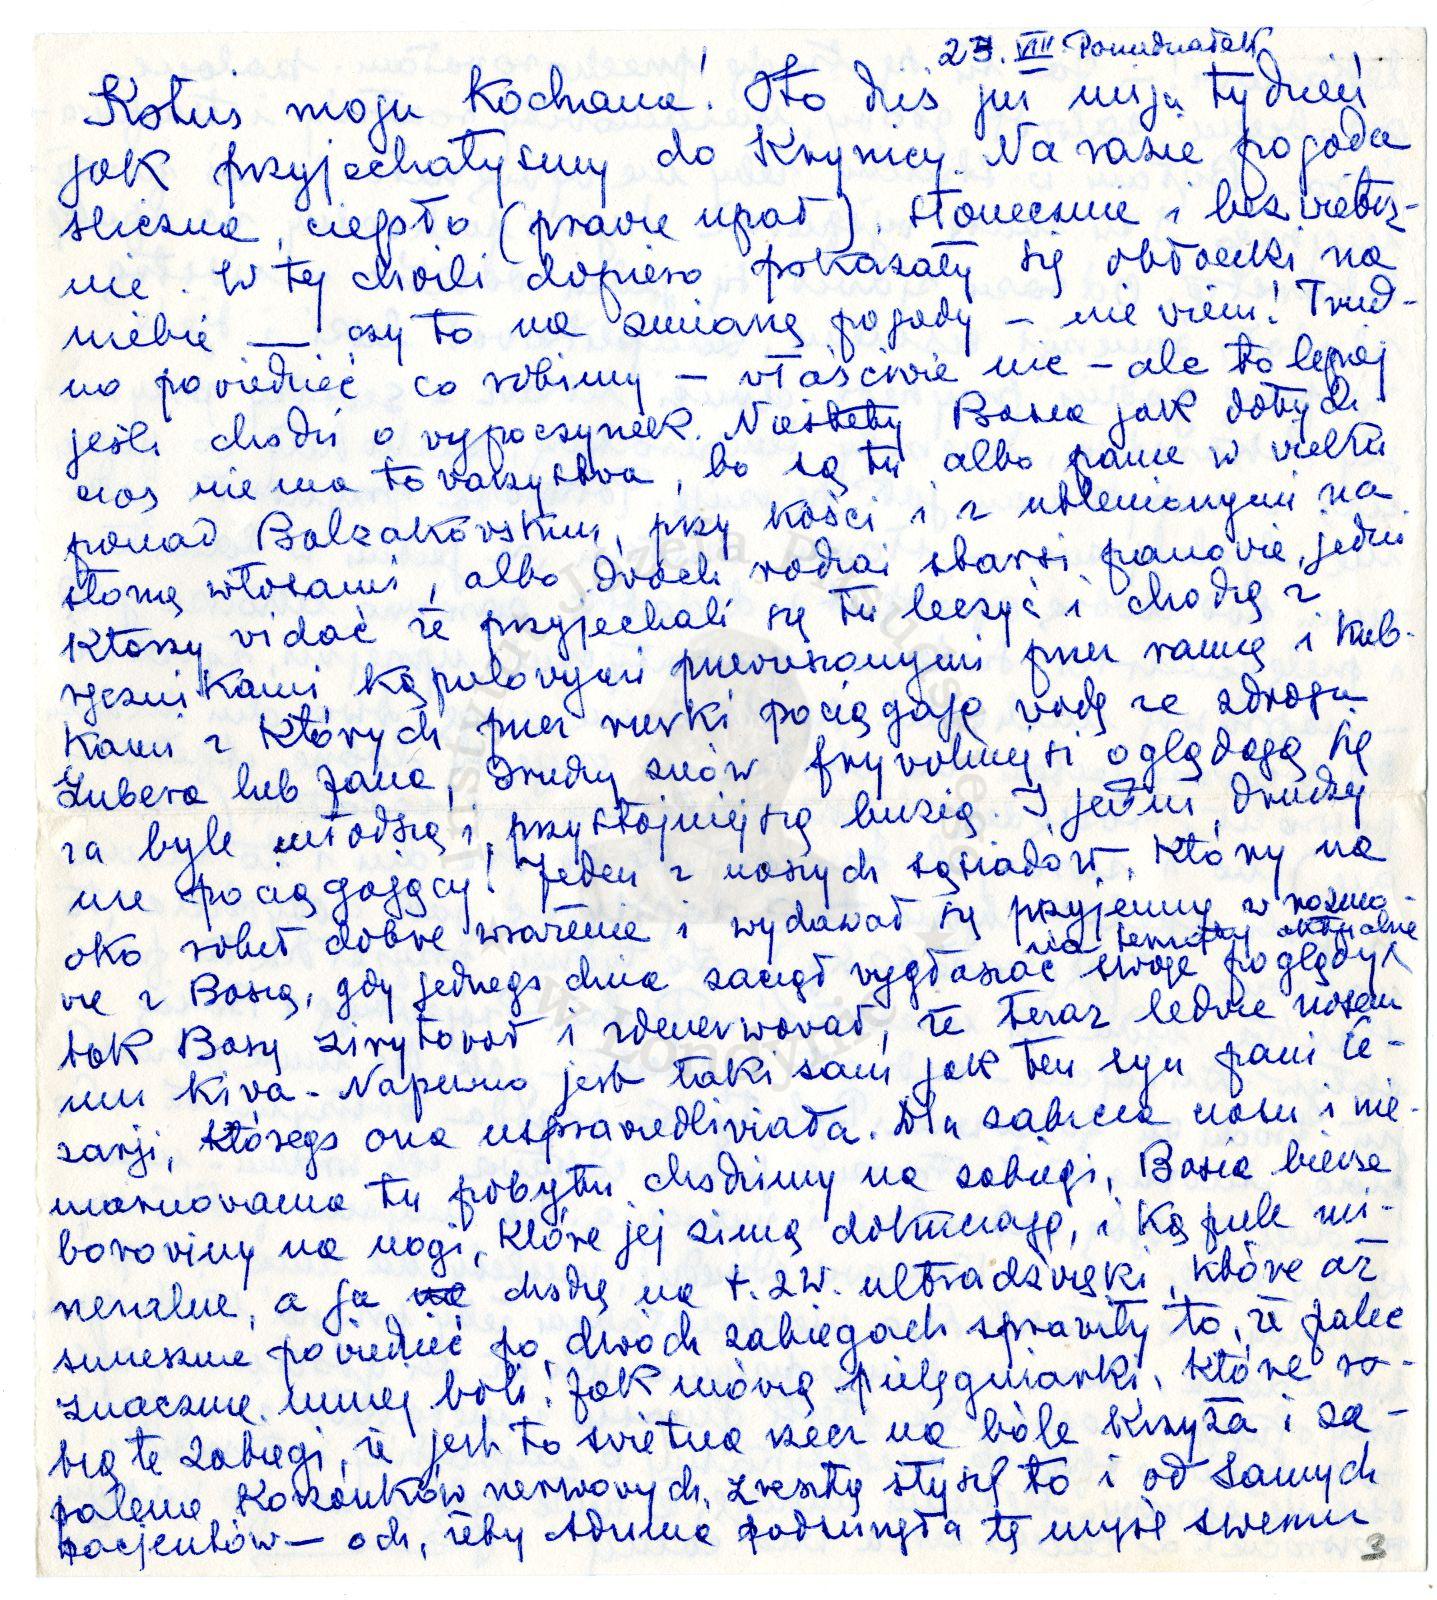 23. VIII. Poniedziałek
Kotuś moja Kochana! Oto dziś już mija tydzień
jak przyjechałyśmy do Krynicy. Na razie pogoda
śliczna, ciepło (prawie upał), słonecznie i bezwietrz-
nie. W tej chwili dopiero pokazały się obłoczki na
niebie — czy to na zmianę pogody – nie wiem! Trud-
no powiedzieć co robimy – właściwie nic – ale to lepiej
jeśli chodzi o wypoczynek. Niestety Basia jak dotych-
czas nie ma towarzystwa, bo są tu albo panie w wieku
ponad Balzakowskim, przy kości i z utlenionymi na
słomę włosami, albo dwóch rodzai starsi panowie, jedni
którzy widać że przyjechali się tu leczyć i chodzą z
ręcznikami kąpielowymi przewieszonymi przez ramię i kub-
kami z których przez rurki pociągają wodę ze zdroju
Zubera lub Jana, drudzy znów frywolniejsi oglądają się
za byle młodszą i przystojniejszą buzią. I jedni, drudzy
nie pociągający! Jeden z naszych sąsiadów, który na
oko robił dobre wrażenie i wydawał się przyjemny w rozmo-
wie z Basią, gdy jednego dnia zaczął wygłaszać swoje poglądy
na tematy aktualne
tak Basę zirytował i zdenerwował, że teraz ledwie nosem
mu kiwa. Napewno jest taki sam jak ten syn pani Ce-
zarji, którego ona usprawiedliwiała. Dla zabicia czasu i nie-
marnowania tu pobytu chodzimy na zabiegi, Basia bierze
borowiny na nogi, które jej zimą dokuczają, i kąpiele mi-
neralne, a ja chodzę na t. zw. ultradźwięki, które aż
śmieszne powiedzieć po dwóch zabiegach sprawiły to, że palec
znacznie mniej boli! Jak mówią pielęgniarki, które ro-
bią te zabiegi, że jest to świetna rzecz na bóle krzyża i za-
palenie korzonków nerwowych, zresztą słyszę to i od samych
pacjentów — och, żeby podsunęła tę myśl swemu
3
Instytut Józefa Piłsudskiego
w Londynie